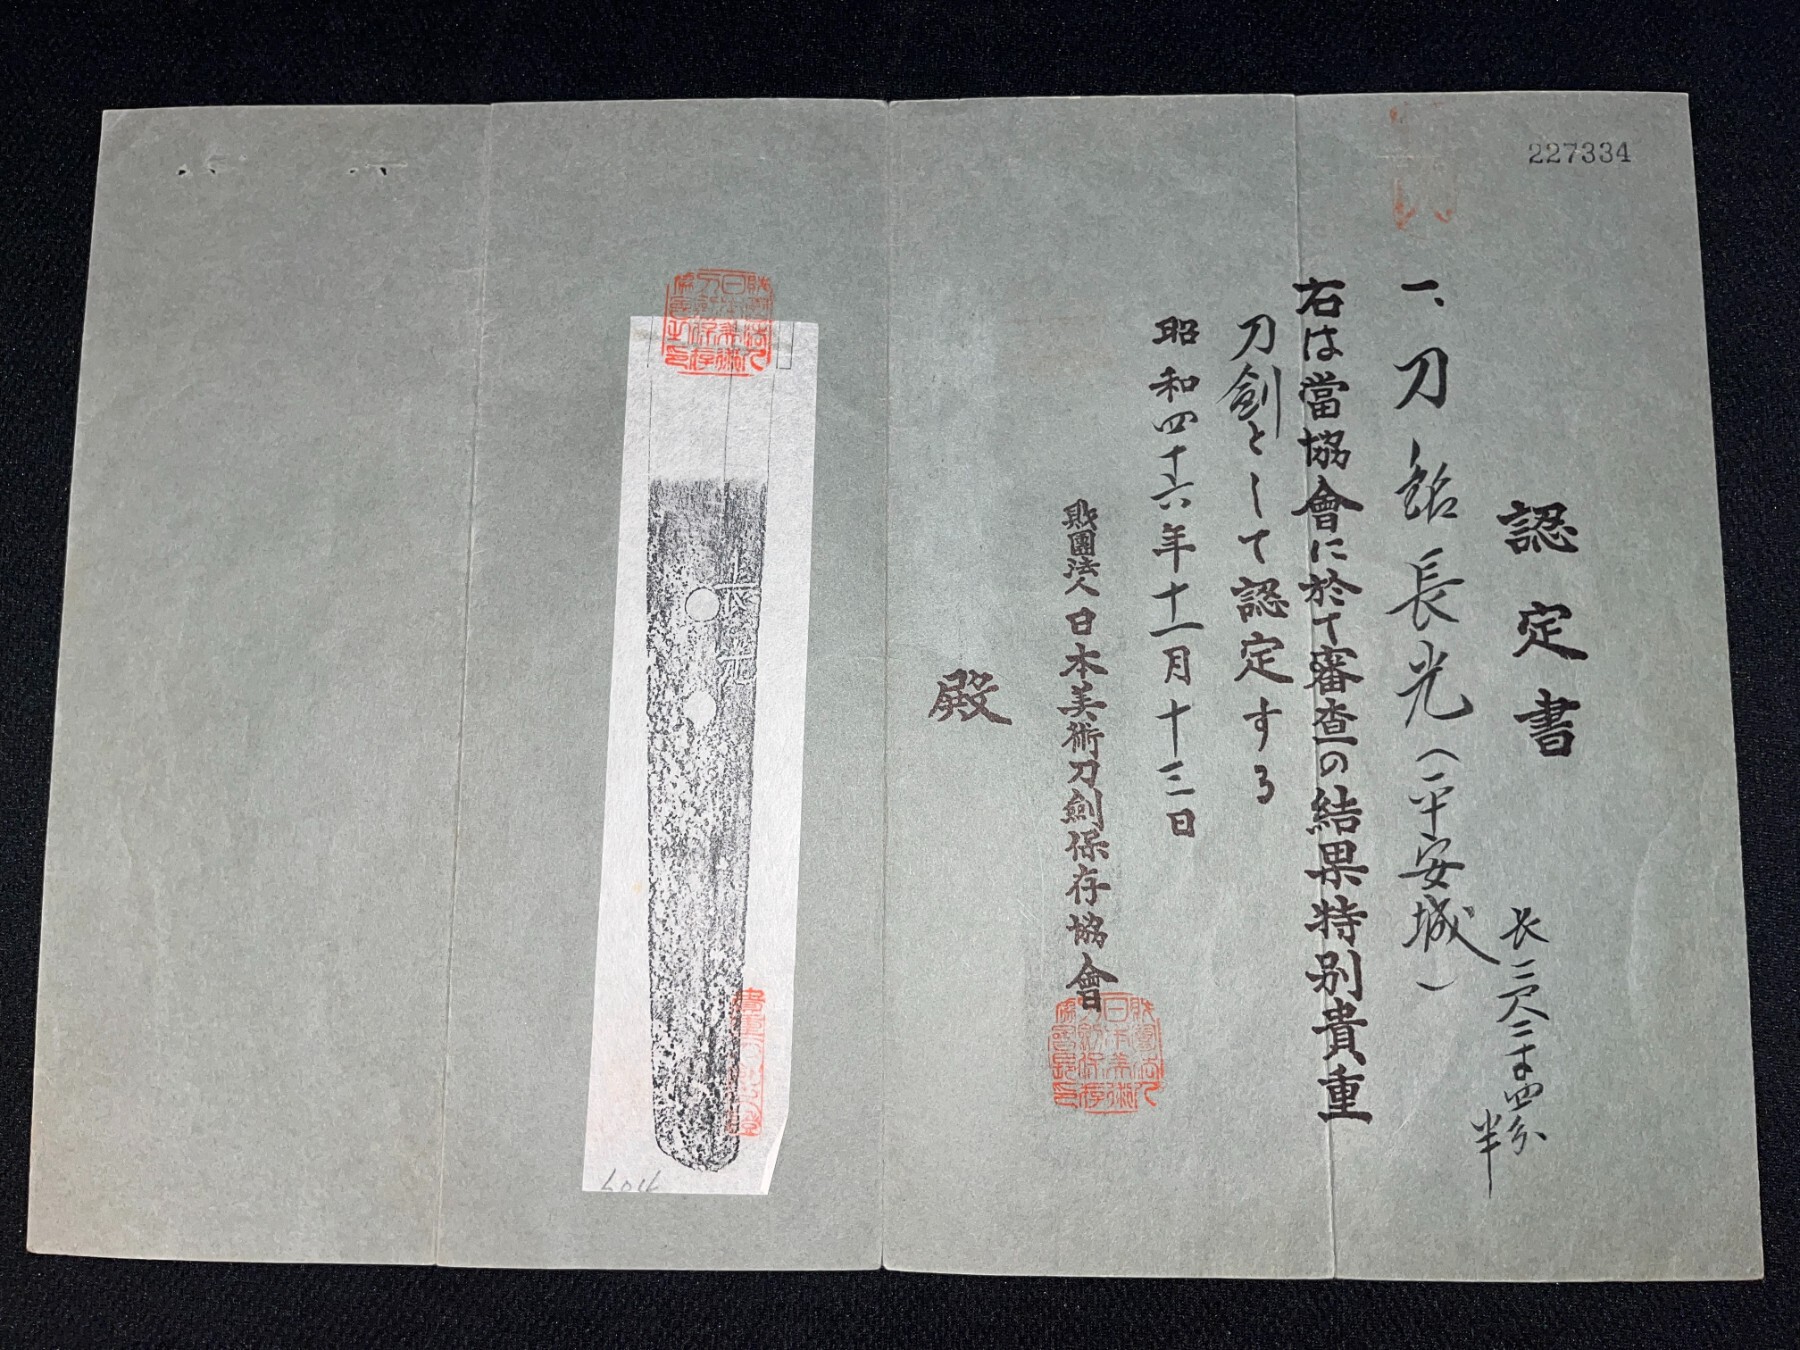 227334
認定書
一、刀 銘 長光(平安城)
長二尺二寸四分半
右は當協會に於て審査の結果特別貴重
刀劍として認定する
昭和四十六年十一月十三日
財團法人日本美術刀劍保存協會
財團法人日本美術刀劍保存協會長印
殿
財團法人日本美術刀劍保存協會之印
長光